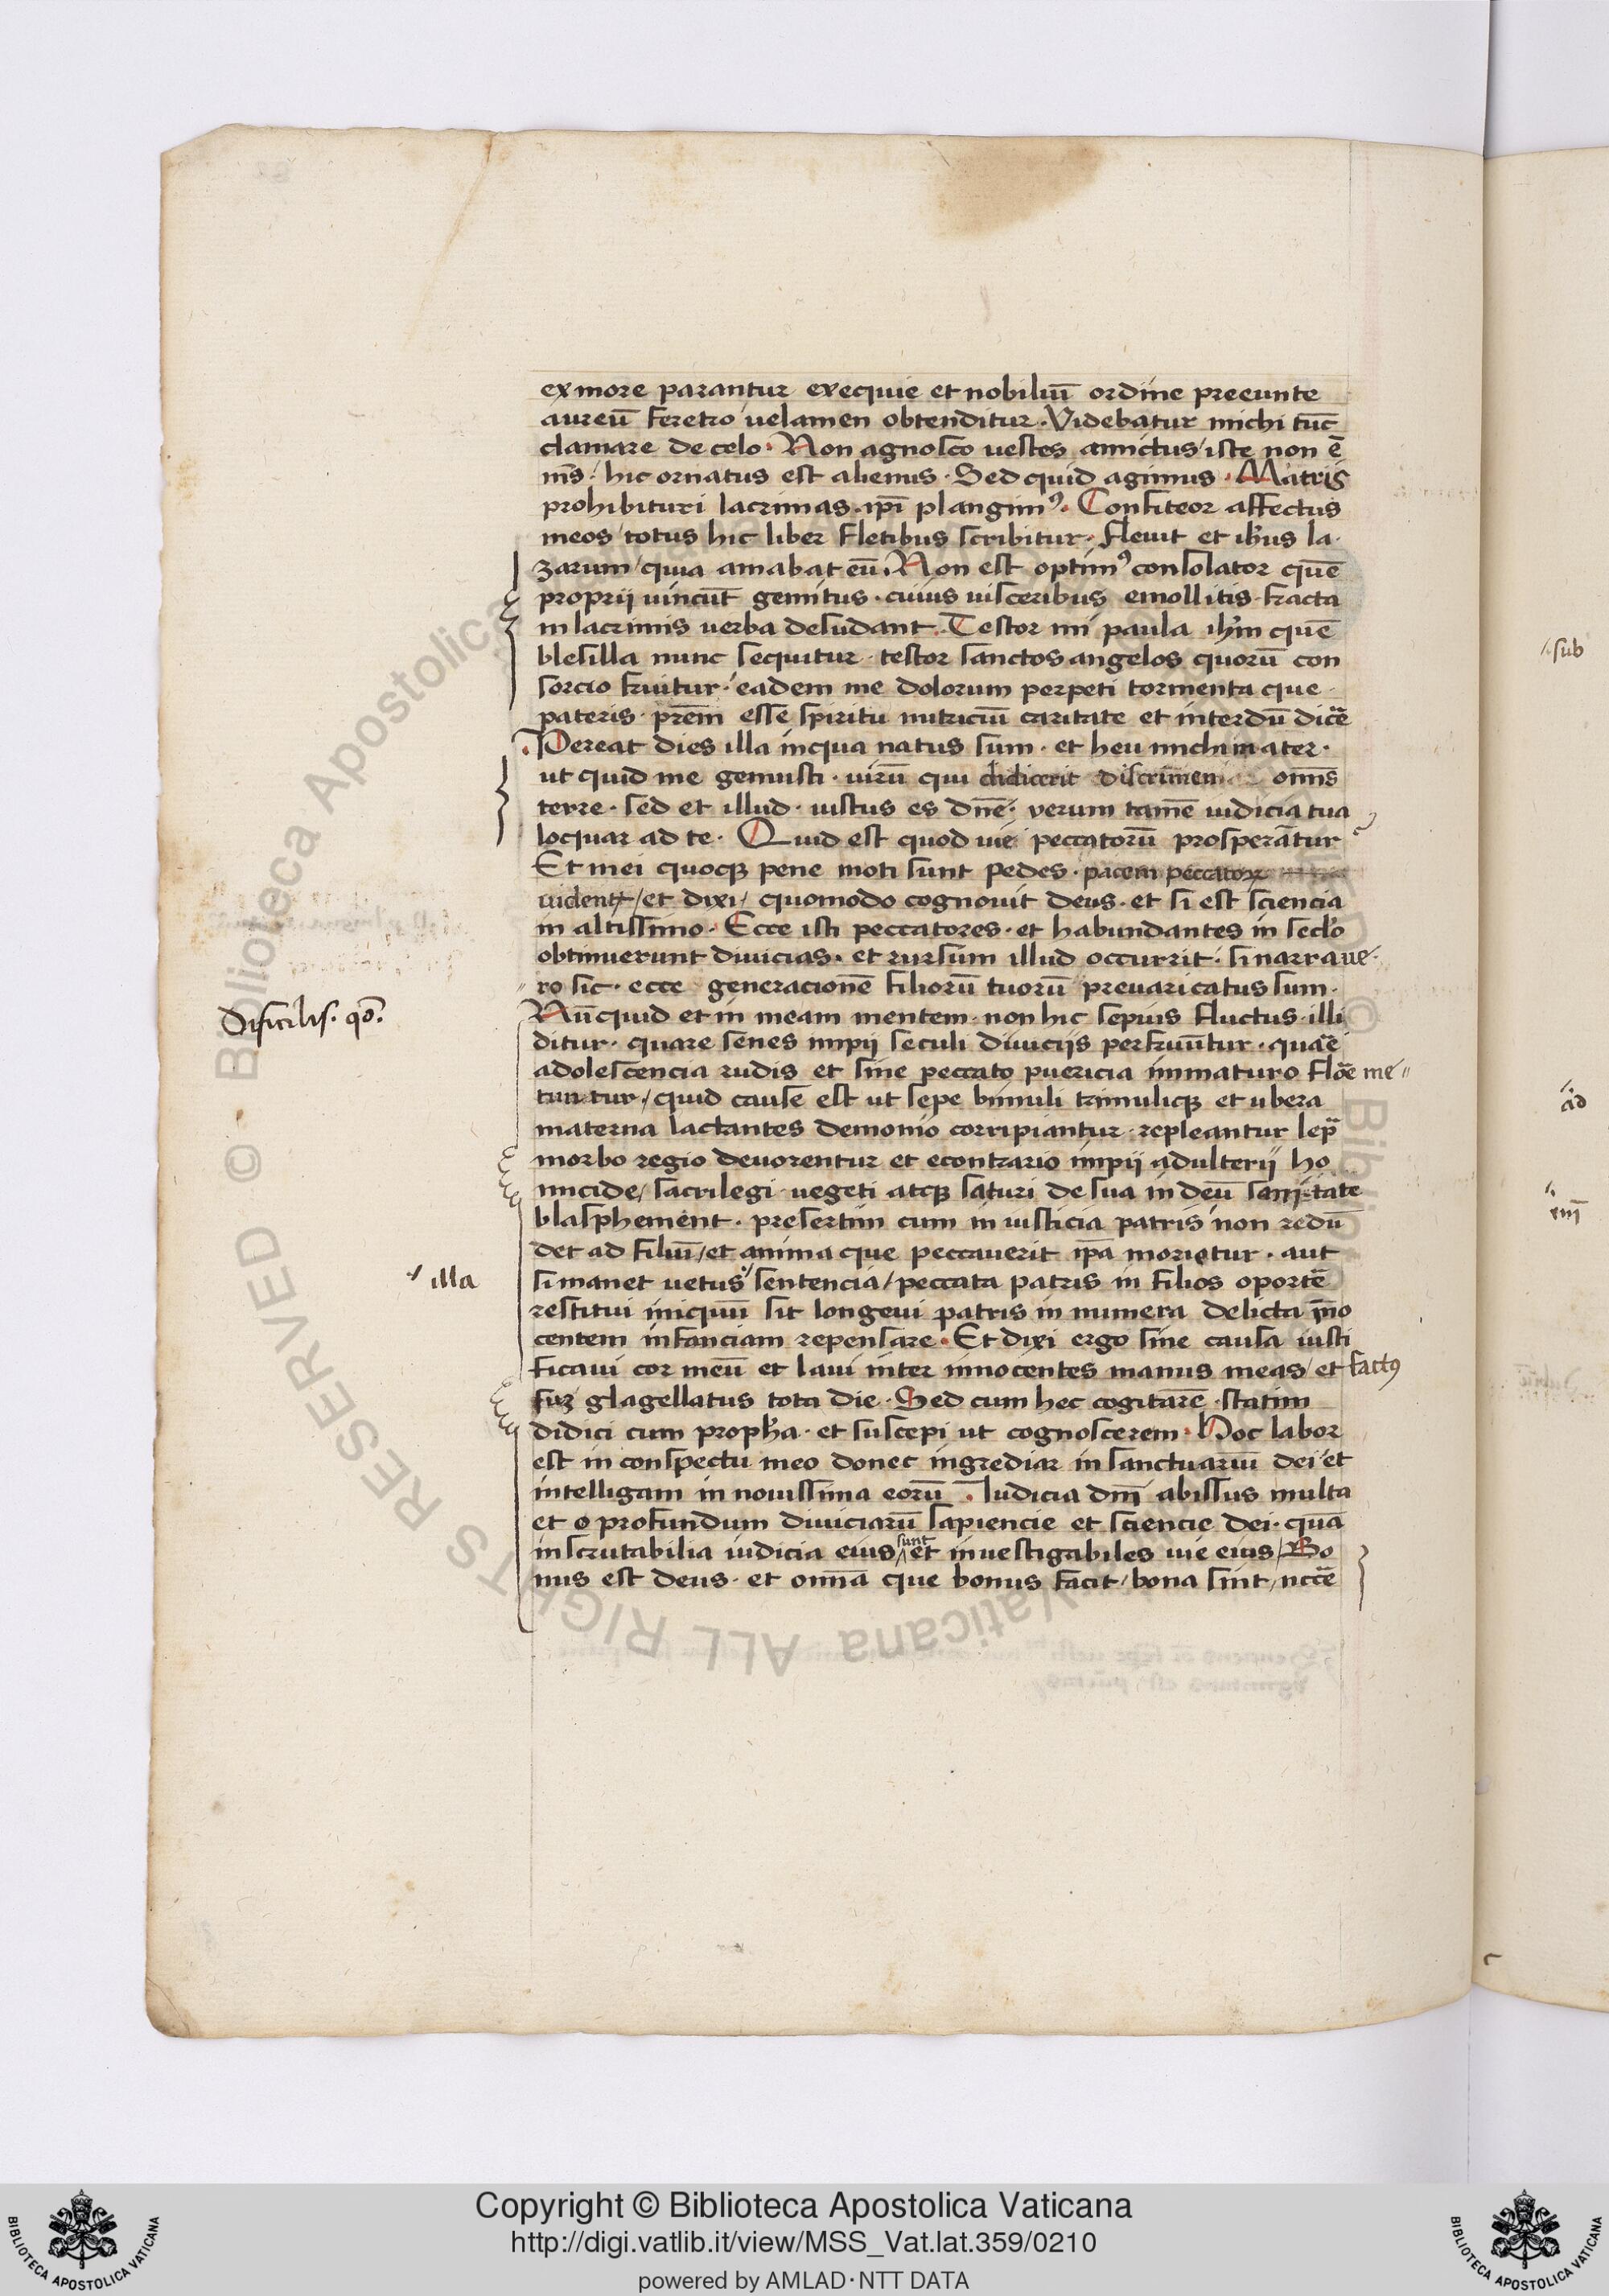 ex more parantur exequie et nobiliũ ordine preeunte
aureũ feretro uelamen obtenditur. Videbatur michi tũc
clamare de celo. Non agnosco uestes amictus / iste non ẽ
ms̄ / hic ornatus est alienus. Sed quid agimus. Matris
prohibituri lacrimas. ip̄i plangimꝰ. Confiteor affectus
meos / totus hic liber fletibus scribitur. fleuit et ih̄us la
zarum / quia amabat eũ. Non est optimꝰ consolator quẽ
proprij uincũt gemitus. cuius uisceribus emollitis. fracta
in lacrimis uerba desudant. Testor mi paula ih̄m quẽ
blesilla nunc sequitur. testor sanctos angelos quorũ con
sorcio fruitur. eadem me dolorum perpeti tormenta que
pateris. pr̄em esse spiritu nutriciũ caritate et interdũ dic̄e
Pereat dies illa in qua natus sum. et heu michi mater.
ut quid me genuisti. uirũ qui didicerit discrimen om̄s
terre. sed et illud. iustus es dn̄e. verum tamẽ iudicia tua
loquar ad te. Quid est quod uie peccatorũ prosperãtur
Et mei quoqꝫ pene moti sunt pedes. pacem peccatoꝝ
uident / et dixi / quomodo cognouit deus. et si est sciencia
in altissimo. Ecce isti peccatores. et habundantes in secl̄o
obtinuerunt diuicias. et rursum illud occurrit. si narraue
ro sic. ecce generacionẽ filiorũ tuorũ preuaricatus sum.
Difficilis. qō.
Nũcquid et in meam mentem. non hic sepius fluctus. illi
ditur. quare senes impij seculi diuicijs perfruũtur. quar̄e
adolescencia rudis et sine peccato puericia immaturo flor̄e me
tuntur / quid cause est ut sepe bimuli trimuliqꝫ et ubera
materna lactantes demonio corripiantur. repleantur lepr̄
morbo regio deuorentur et econtrario impij adulterij ho
micide / sacrilegi uegeti atqꝫ saturi de sua in deũ sanitate
blasphement. presertim cum iniusticia patris non redũ
det ad filiũ / et anima que peccauerit ip̄a morietur. aut
illa
si manet uetus sentencia / peccata patris in filios oportẽ
restitui iniquũ sit longeui patris innumera delicta īno
centem infanciam repensare. Et dixi ergo sine causa iusti
ficaui cor meũ et laui inter innocentes manus meas / et factꝰ
sũ glagellatus tota die. Sed cum hec cogitarẽ. statim
didici cum proph̄a. et suscepi ut cognoscerem. Hoc labor
est in conspectu meo donec ingrediar in sanctuariũ dei et
intelligam in nouissima eorũ. Iudicia dn̄i abissus multa
et o profundum diuiciarũ sapiencie et sciencie dei. quã
inscrutabilia iudicia eius sunt et inuestigabiles uie eius / Bo
nus est deus. et om̄ia que bonus facit / bona sint / ncc̄e
sub
ad
Copyright © Biblioteca Apostolica Vaticana
http://digi.vatlib.it/view/MSS_Vat.lat.359/0210
powered by AMLAD·NTT DATA
BIBLIOTECA APOSTOLICA VATICANA
BIBLIOTECA APOSTOLICA VATICANA